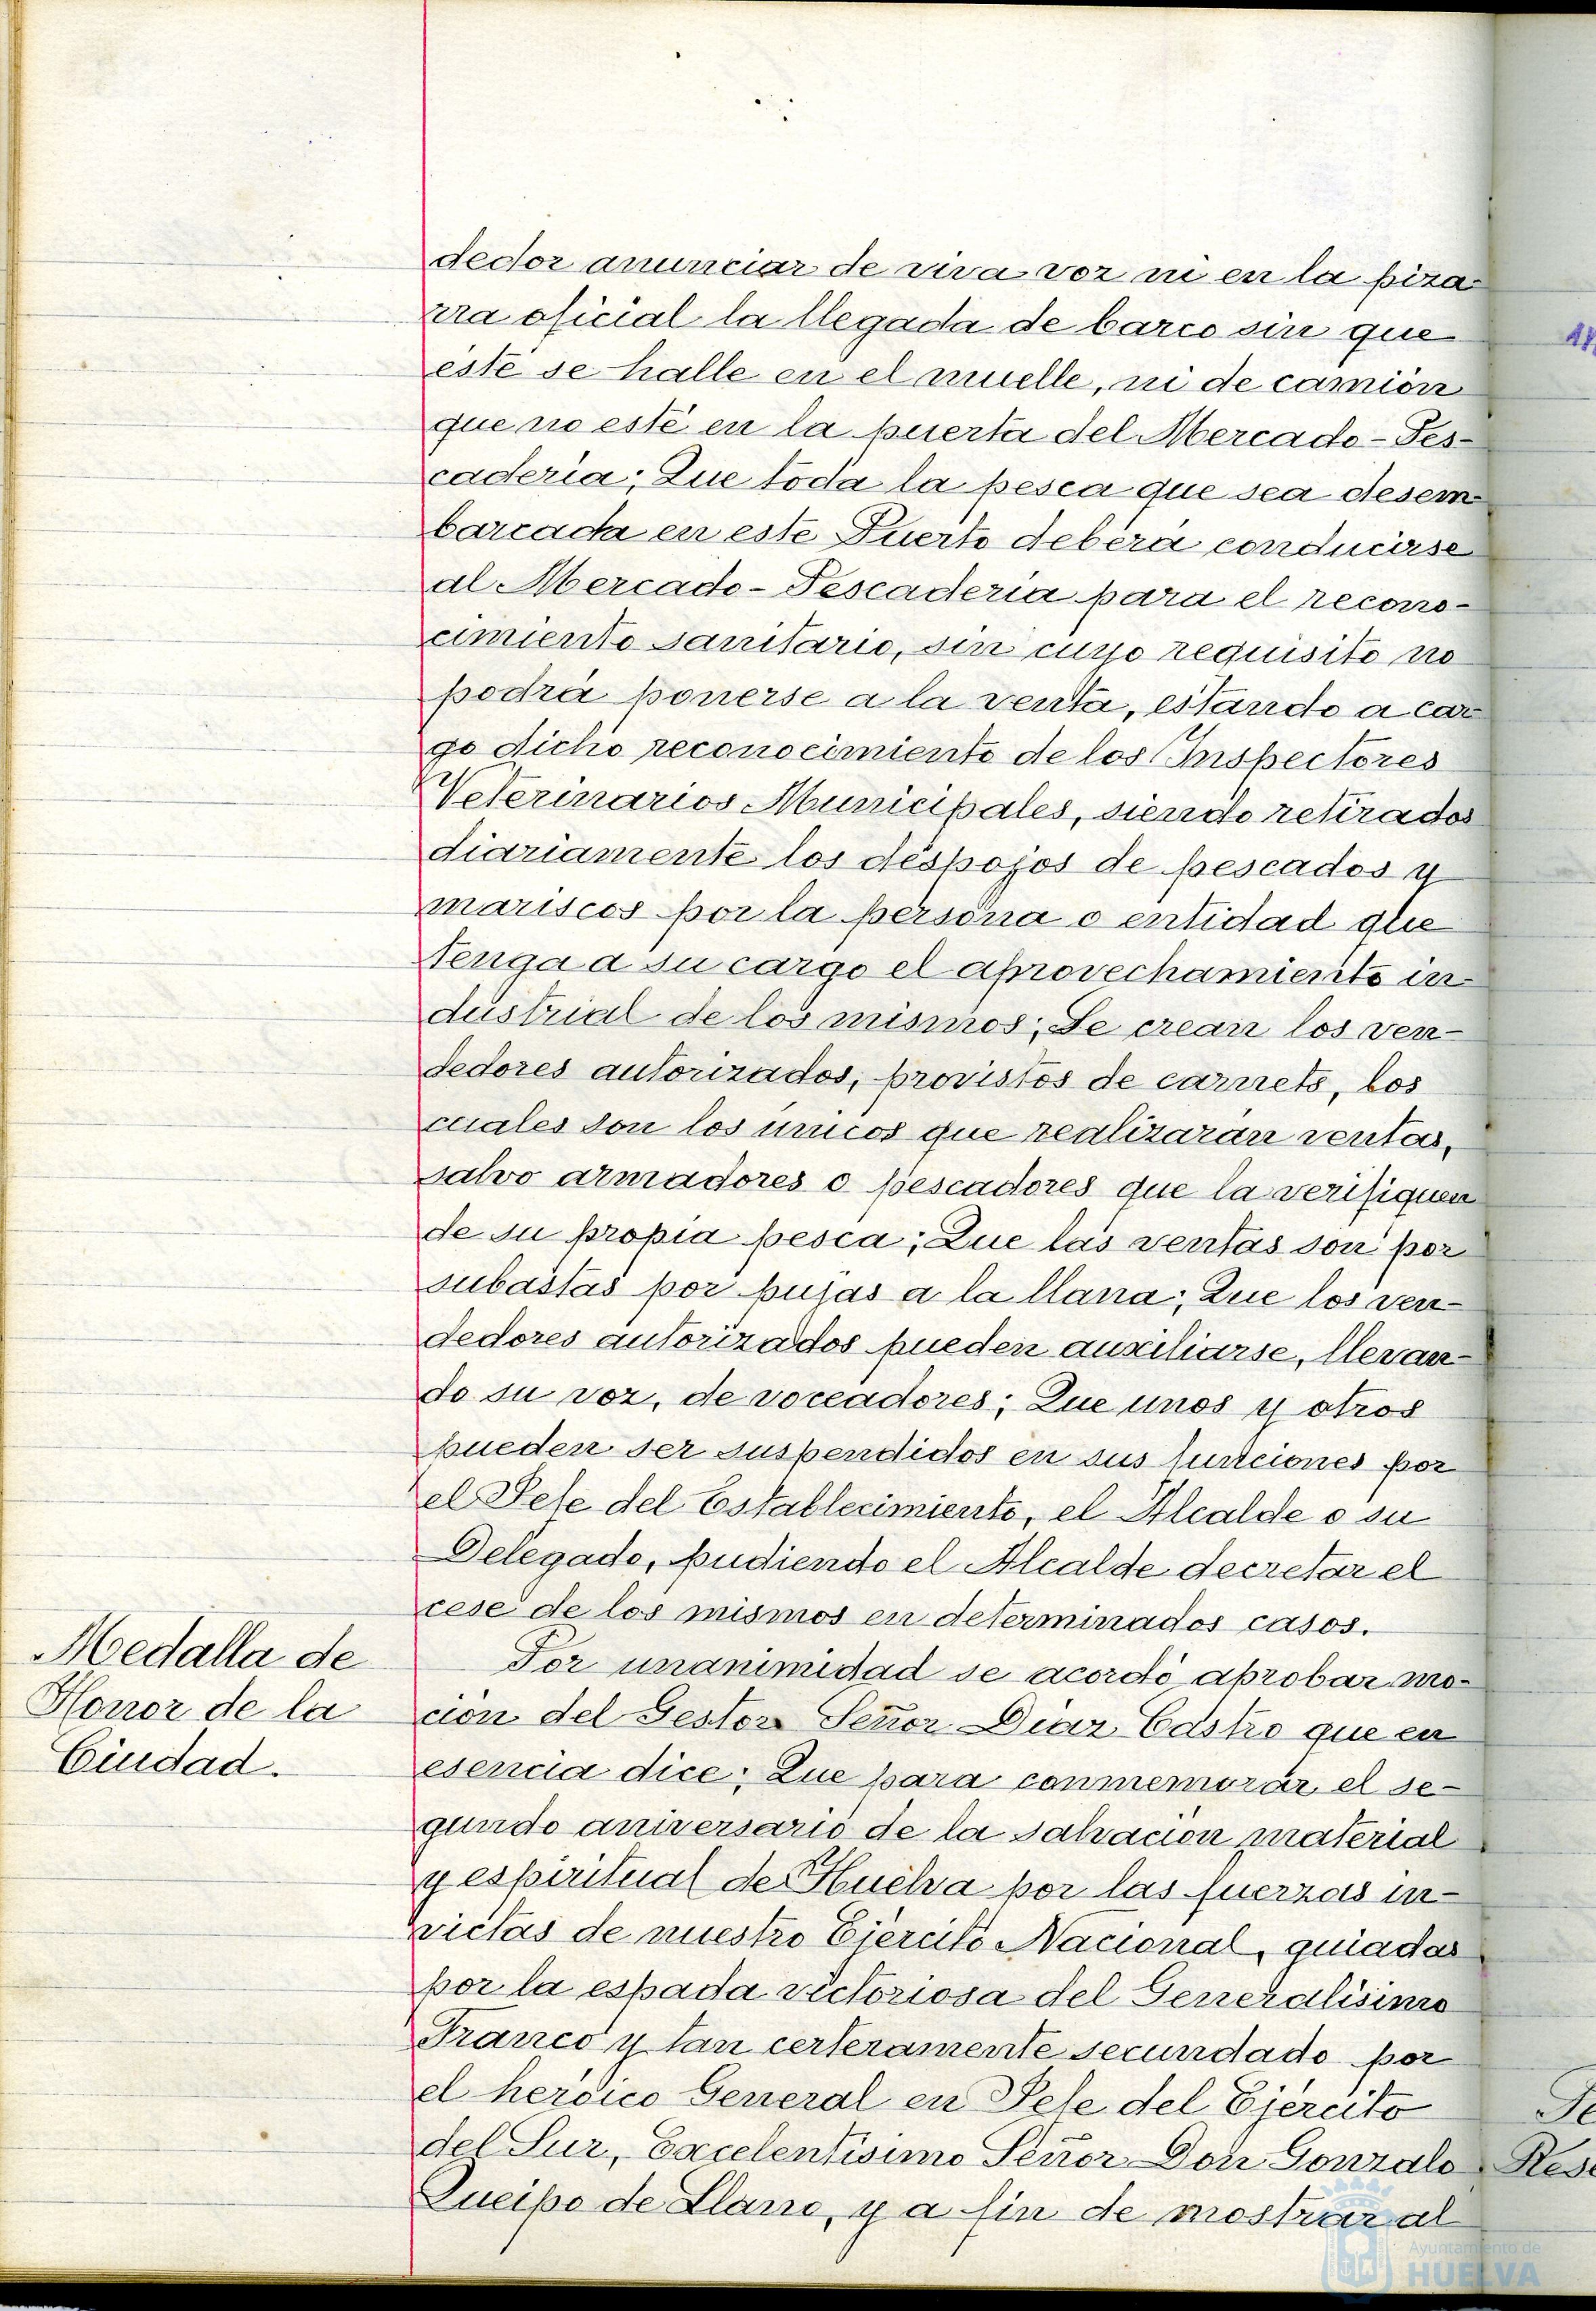 dedor anunciar de viva voz ni en la piza-
rra oficial la llegada de barco sin que
este se halle en el muelle, ni de camión
que no esté en la puerta del Mercado-Pes-
cadería; Que toda la pesca que sea desem-
barcada en este Puerto deberá conducirse
al Mercado-Pescadería para el recono-
cimiento sanitario, sin cuyo requisito no
podrá ponerse a la venta, estando a car-
go dicho reconocimiento de los Inspectores
Veterinarios Municipales, siendo retirados
diariamente los despojos de pescados y
mariscos por la persona o entidad que
tenga a su cargo el aprovechamiento in-
dustrial de los mismos; Se crean los ven-
dedores autorizados, provistos de carnets, los
cuales son los únicos que realizarán ventas,
salvo armadores o pescadores que la verifiquen
de su propia pesca; Que las ventas son por
subastas por pujas a la llana; Que los ven-
dedores autorizados pueden auxiliarse, llevan-
do su voz, de voceadores; Que unos y otros
pueden ser suspendidos en sus funciones por
el Jefe del Establecimiento, el Alcalde o su
Delegado, pudiendo el Alcalde decretar el
cese de los mismos en determinados casos.
Medalla de
Honor de la
Ciudad.
Por unanimidad se acordó aprobar mo-
ción del Gestor Señor Díaz Castro que en
esencia dice: Que para conmemorar el se-
gundo aniversario de la salvación material
y espiritual de Huelva por las fuerzas in-
victas de nuestro Ejército Nacional, guiadas
por la espada victoriosa del Generalísimo
Franco y tan certeramente secundado por
el heróico General en Jefe del Ejército
del Sur, Excelentísimo Señor Don Gonzalo
Queipo de Llano, y a fin de mostrar al
Ayuntamiento de
HUELVA